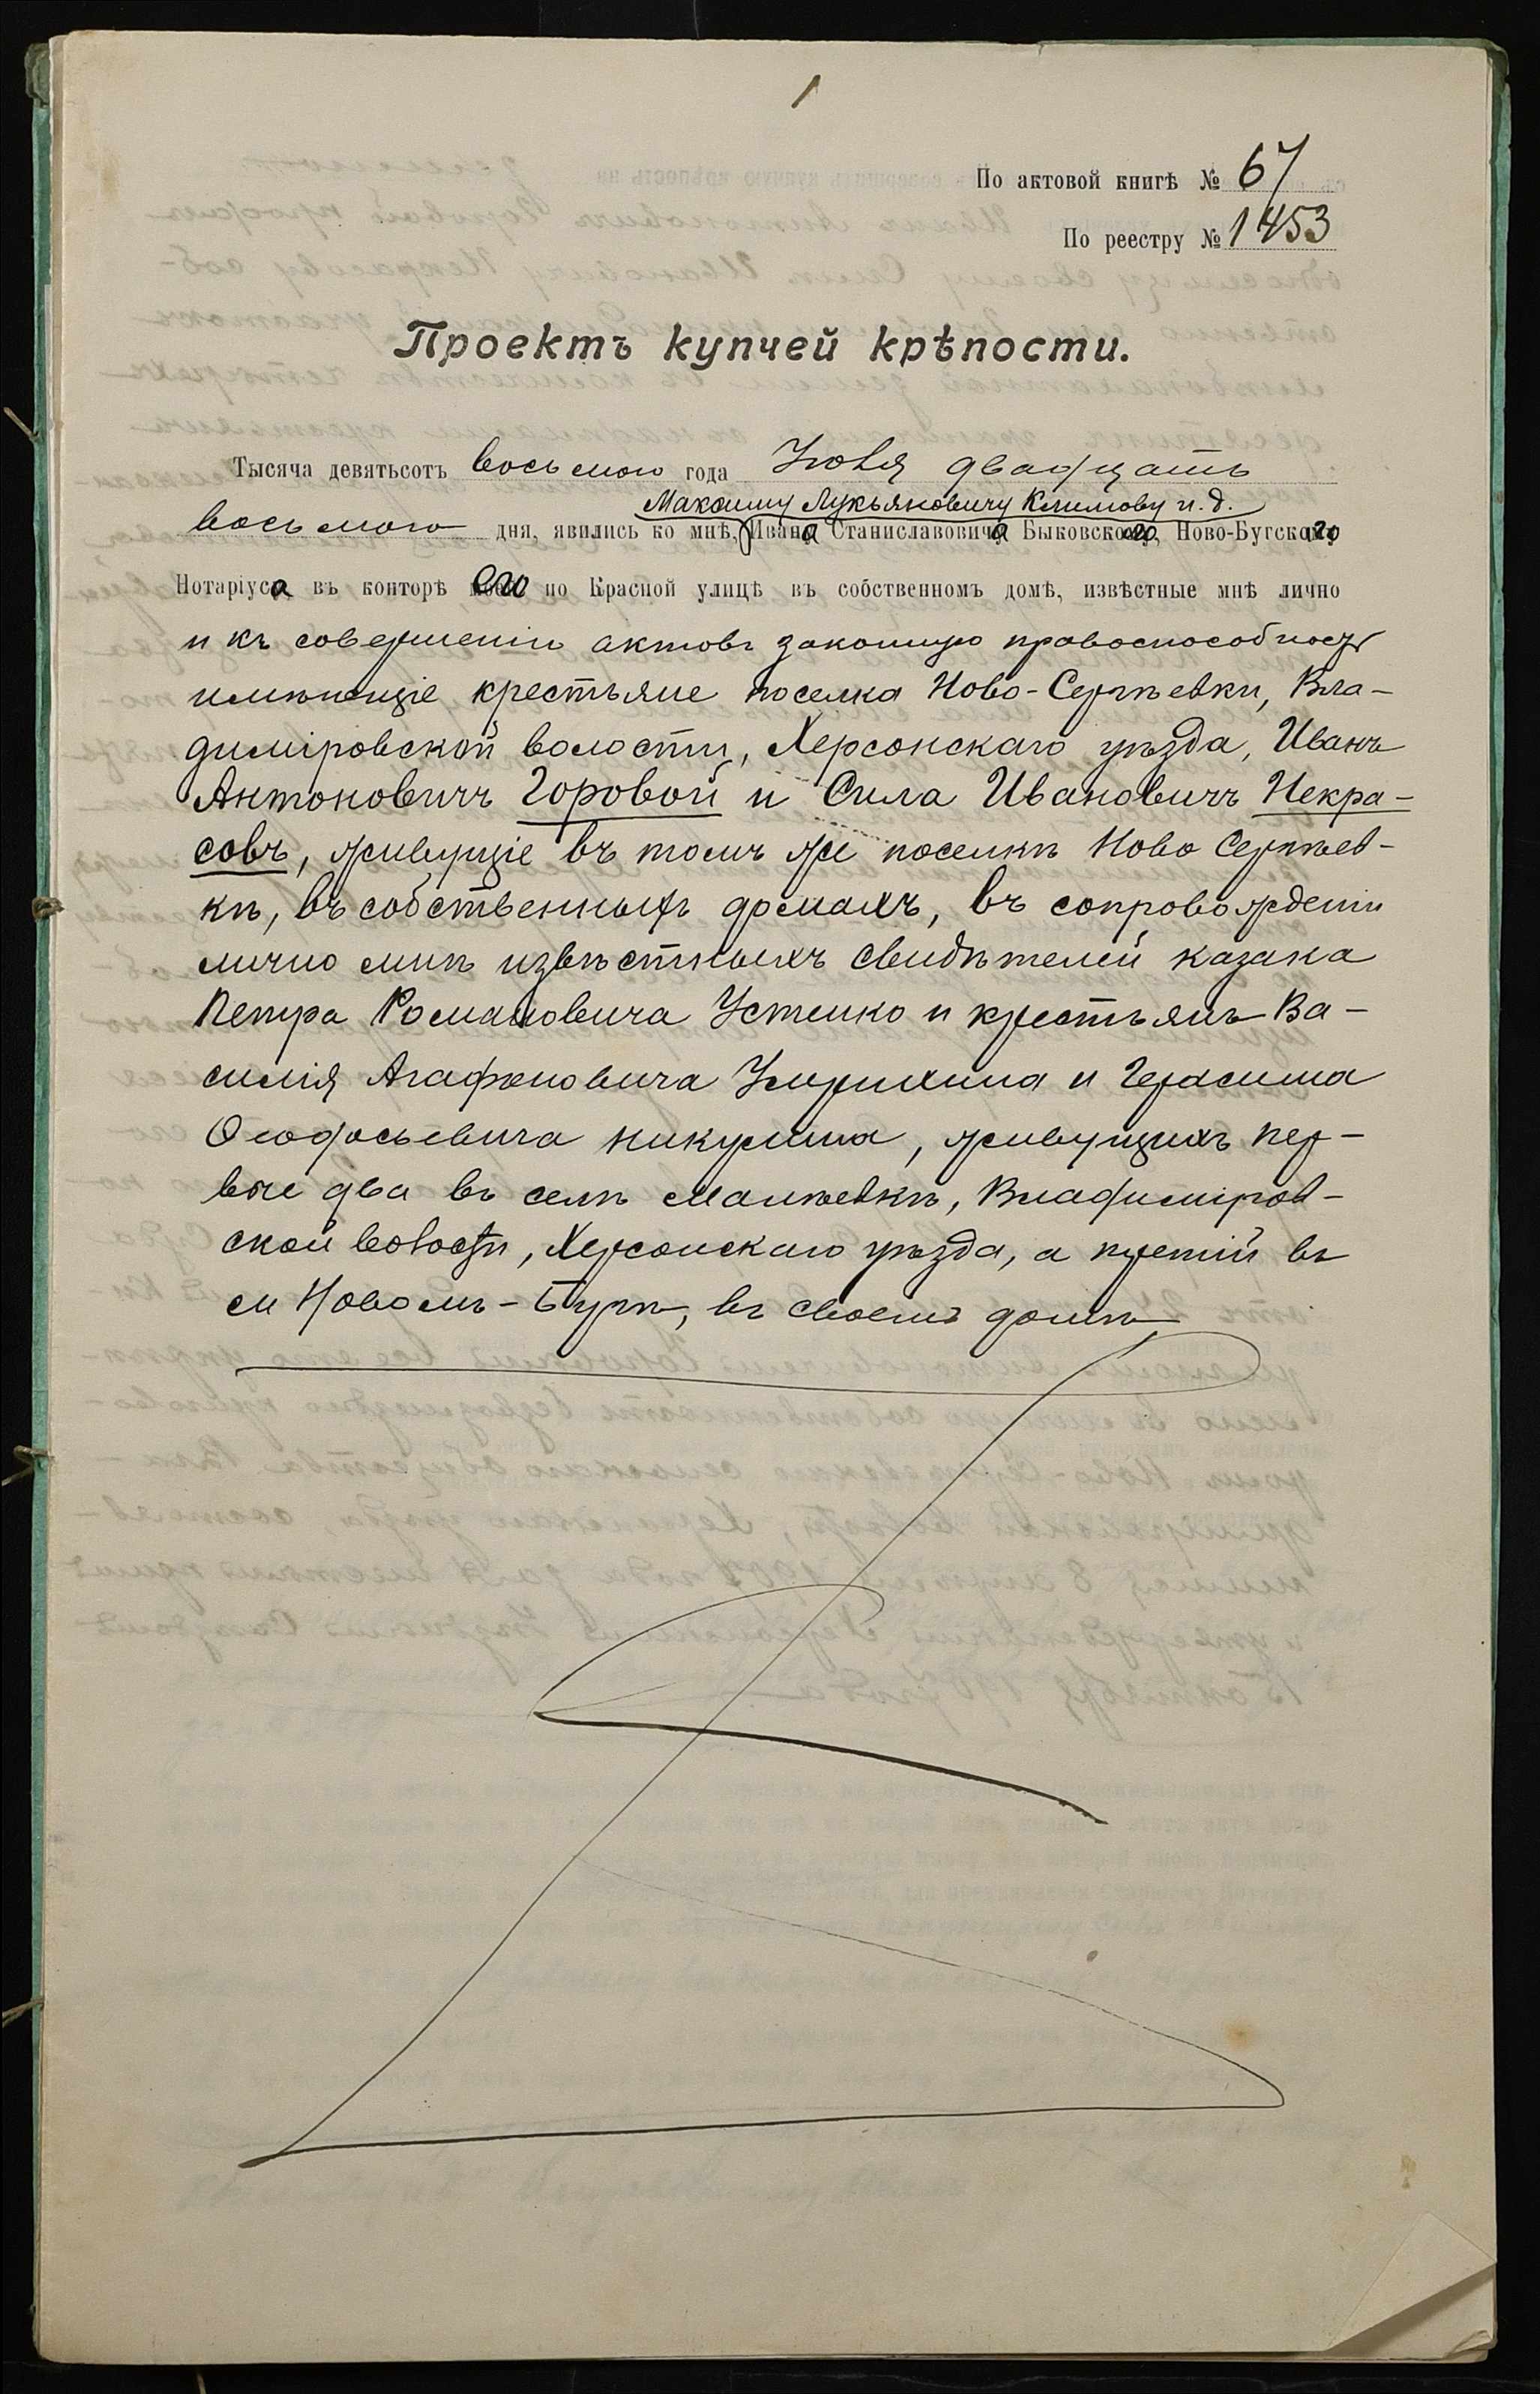 1
По актовой книгѣ № 67
По реестру № 1453
Проектъ купчей крѣпости.
Тысяча девятьсотъ восьмого года Іюля двадцать
Максиму Лукьяновичу Климову и. д.
восьмого дня, явились ко мнѣ, Ивана Станиславовича Быковскаго, Ново-Бугскаго
Нотаріуса въ конторѣ его по Красной улицѣ въ собственномъ домѣ, извѣстные мнѣ лично
и къ совершенію актовъ законную правоспособность
имѣющіе крестьяне поселка Ново-Сергѣевки, Вла-
диміровской волости, Херсонскаго уѣзда, Иванъ
Антоновичъ Горовой и Сила Ивановичъ Некра-
совъ, живущіе въ томъ же поселкѣ Ново Сергѣев-
кѣ, въ собственныхъ домахъ, въ сопровожденіи
лично мнѣ извѣстныхъ свидѣтелей казака
Петра Романовича Устенко и крестьянъ Ва-
силія Агафоновича и Герасима
Ѳеодосьевича Никулина, живущихъ пер-
вые два въ селѣ Малѣевкѣ, Владиміров-
ской волости, Херсонскаго уѣзда, а третій въ
м Новомъ-Бугѣ, въ своемъ домѣ